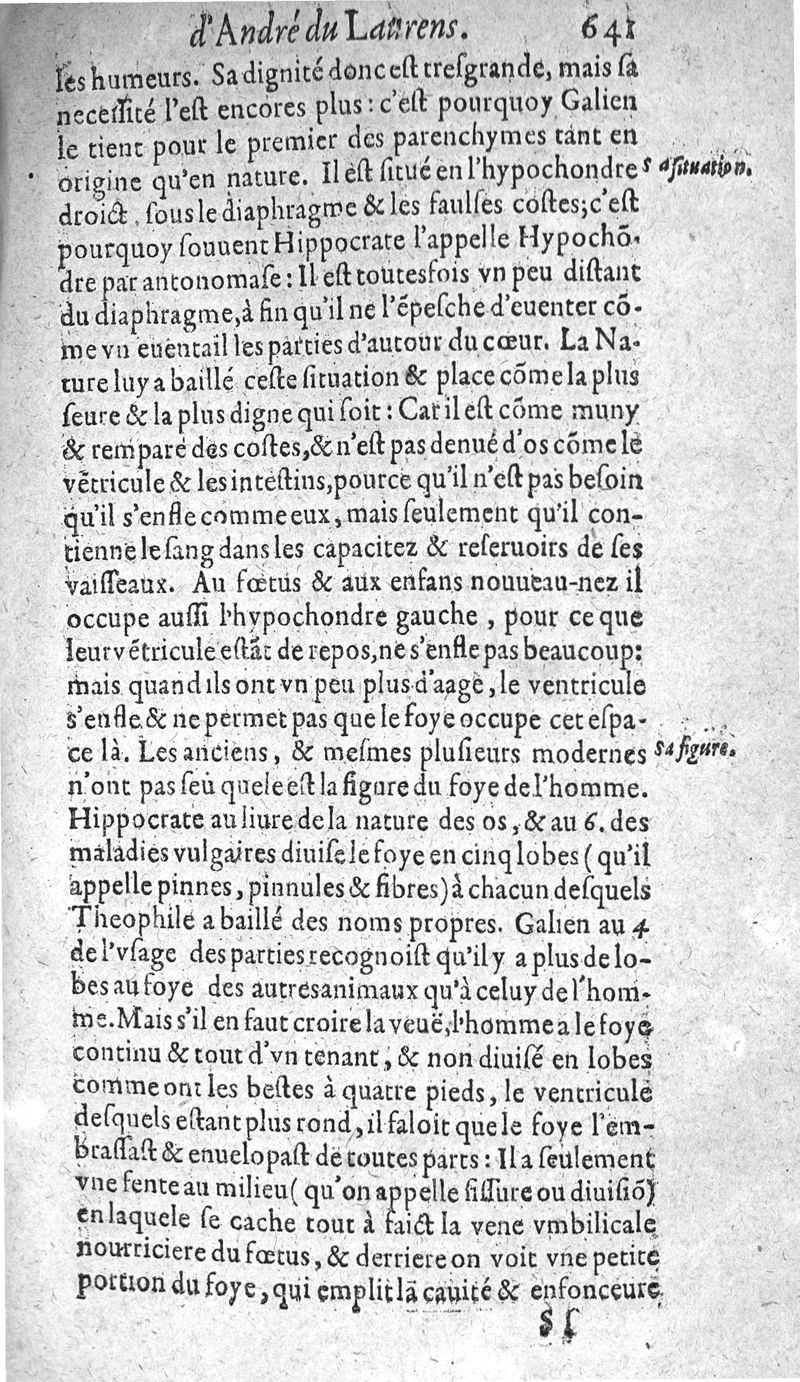 d'André du Laurens. 641
les humeurs. Sa dignité donc est tresgrande, mais sa
necessité l'est encores plus : c'est pourquoy Galien
le tient pour le premier des parenchymes tant en
origine qu'en nature. Il est situé en l'hypochondre
Sa situation.
droict, sous le diaphragme & les faulses costes; c'est
pourquoy souuent Hippocrate l'appelle Hypochõ-
dre par antonomase : Il est toutesfois vn peu distant
du diaphragme, à fin qu'il ne l'ẽpesche d'euenter cõ-
me vn euentail les parties d'autour du cœur. La Na-
ture luy a baillé ceste situation & place cõme la plus
seure & la plus digne qui soit : Car il est cõme muny
& remparé des costes, & n'est pas denué d'os cõme le
vẽtricule & les intestins, pource qu'il n'est pas besoin
qu'il s'enfle comme eux, mais seulement qu'il con-
tienne le sang dans les capacitez & reseruoirs de ses
vaisseaux. Au fœtus & aux enfans nouueau-nez il
occupe aussi l'hypochondre gauche, pour ce que
leur vẽtricule estãt de repos, ne s'enfle pas beaucoup:
mais quand ils ont vn peu plus d'aage, le ventricule
s'enfle & ne permet pas que le foye occupe cet espa-
ce là. Les anciens, & mesmes plusieurs modernes
Sa figure.
n'ont pas seu quele est la figure du foye de l'homme.
Hippocrate au liure de la nature des os, & au 6. des
maladies vulgaires diuise le foye en cinq lobes (qu'il
appelle pinnes, pinnules & fibres) à chacun desquels
Theophile a baillé des noms propres. Galien au 4
de l'vsage des parties recognoist qu'il y a plus de lo-
bes au foye des autres animaux qu'à celuy de l'hom-
me. Mais s'il en faut croire la veuë, l'homme a le foye
continu & tout d'vn tenant, & non diuisé en lobes
comme ont les bestes à quatre pieds, le ventricule
desquels estant plus rond, il faloit que le foye l'em-
brassast & enuelopast de toutes parts : Il a seulement
vne fente au milieu (qu'on appelle fissure ou diuisiõ)
en laquele se cache tout à faict la vene vmbilicale
nourriciere du fœtus, & derriere on voit vne petite
portion du foye, qui emplit la cauité & enfonceure
Sſ